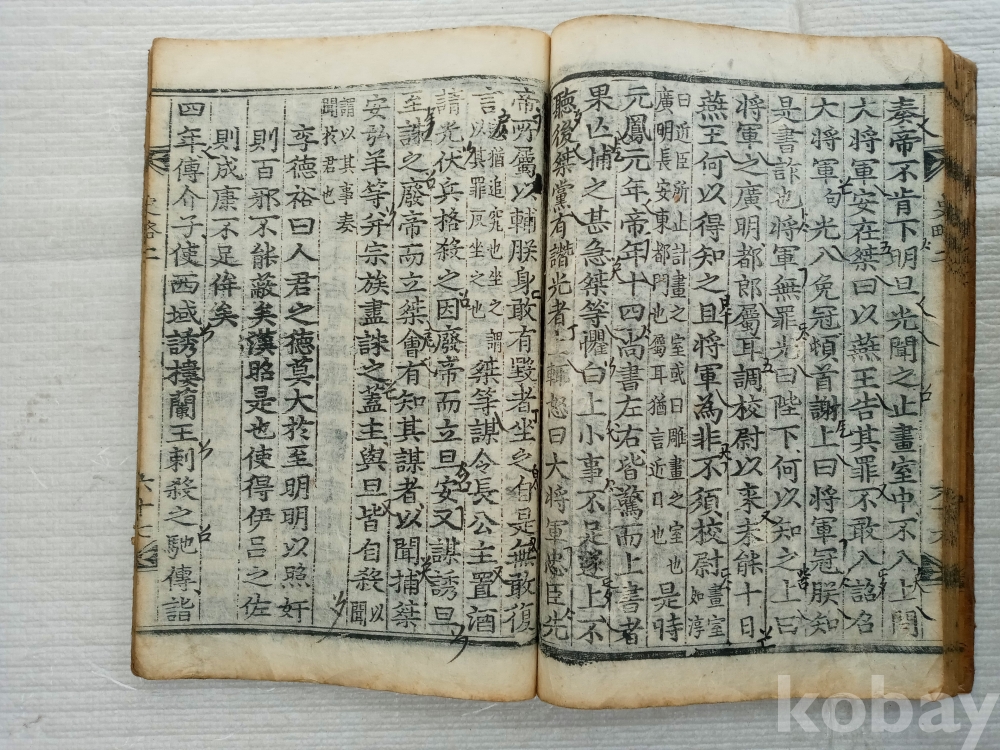 奏帝不肯下明旦光聞之止畫室中不入上問
大將軍安在桀曰以燕王告其罪不敢入詔召
大將軍光入免冠頓首謝上曰將軍冠朕知
是書詐也將軍無罪光曰陛下何以知之上曰
將軍之廣明都郎屬耳調校尉以来未能十日
燕王何以得知之且將軍為非不須校尉畫室如淳
曰近臣所止計畫之室或曰雕畫之室也
廣明長安東都門也屬耳猶言近日也是時
元鳳元年帝年十四尚書左右皆驚而上書者
果亡捕之甚急桀等懼白上小事不足遂上不
聽後桀黨有譖光者上輒怒曰大將軍忠臣先
史略二
帝所屬以輔朕身敢有毀者坐之自是無敢復
言猶追究也坐之謂
以其罪反坐之也桀等謀令長公主置酒
請光伏兵格殺之因廢帝而立旦安又謀誘旦
至誅之廢帝而立桀會有知其謀者以聞捕桀
安弘羊等幷宗族盡誅之蓋主與旦皆自殺以聞
謂以其事奏
聞於君也
李德裕曰人君之德莫大於至明明以照奸
則百邪不能蔽矣漢昭是也使得伊呂之佐
則成康不足侔矣
四年傅介子使西域誘樓蘭王刺殺之馳傳詣
史略二
六十七
kobay